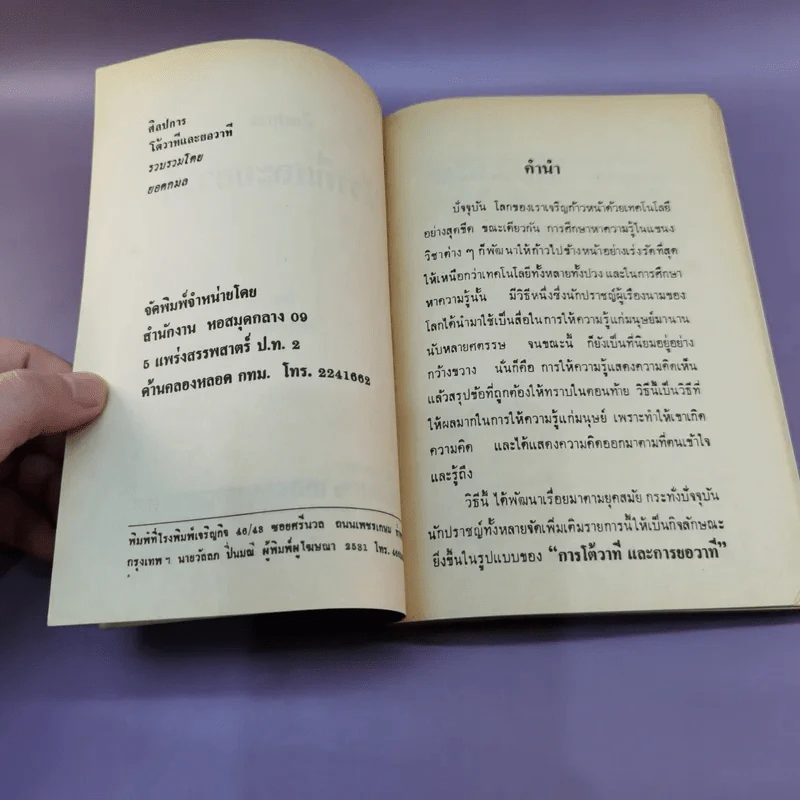 ศิลปการ
โต้วาทีและยอวาที
รวบรวมโดย
ยอดกมล
จัดพิมพ์จำหน่ายโดย
สำนักงาน หอสมุดกลาง 09
5 แพร่งสรรพสาตร์ ป.ท. 2
ด้านคลองหลอด กทม. โทร. 2241662
พิมพ์ที่โรงพิมพ์เจริญกิจ 46/43 ซอยศรีนวล ถนนเพชรเกษม
กรุงเทพฯ นายวัลลภ ปิ่นมณี ผู้พิมพ์ผู้โฆษณา 2531 โทร.
คำนำ
ปัจจุบัน โลกของเราเจริญก้าวหน้าด้วยเทคโนโลยี
อย่างสุดขีด ขณะเดียวกัน การศึกษาหาความรู้ในแขนง
วิชาต่าง ๆ ก็พัฒนาให้ก้าวไปข้างหน้าอย่างเร่งรัดที่สุด
ให้เหนือกว่าเทคโนโลยีทั้งหลายทั้งปวง และในการศึกษา
หาความรู้นั้น มีวิธีหนึ่งซึ่งนักปราชญ์ผู้เรืองนามของ
โลกได้นำมาใช้เป็นสื่อในการให้ความรู้แก่มนุษย์มานาน
นับหลายศตรรษ จนขณะนี้ ก็ยังเป็นที่นิยมอยู่อย่าง
กว้างขวาง นั่นก็คือ การให้ความรู้แสดงความคิดเห็น
แล้วสรุปข้อที่ถูกต้องให้ทราบในตอนท้าย วิธีนี้เป็นวิธีที่
ให้ผลมากในการให้ความรู้แก่มนุษย์ เพราะทำให้เขาเกิด
ความคิด และได้แสดงความคิดออกมาตามที่ตนเข้าใจ
และรู้ถึง
วิธีนี้ ได้พัฒนาเรื่อยมาตามยุคสมัย กระทั่งปัจจุบัน
นักปราชญ์ทั้งหลายจัดเพิ่มเติมรายการนี้ให้เป็นกิจลักษณะ
ยิ่งขึ้นในรูปแบบของ “การโต้วาที และการยอวาที”